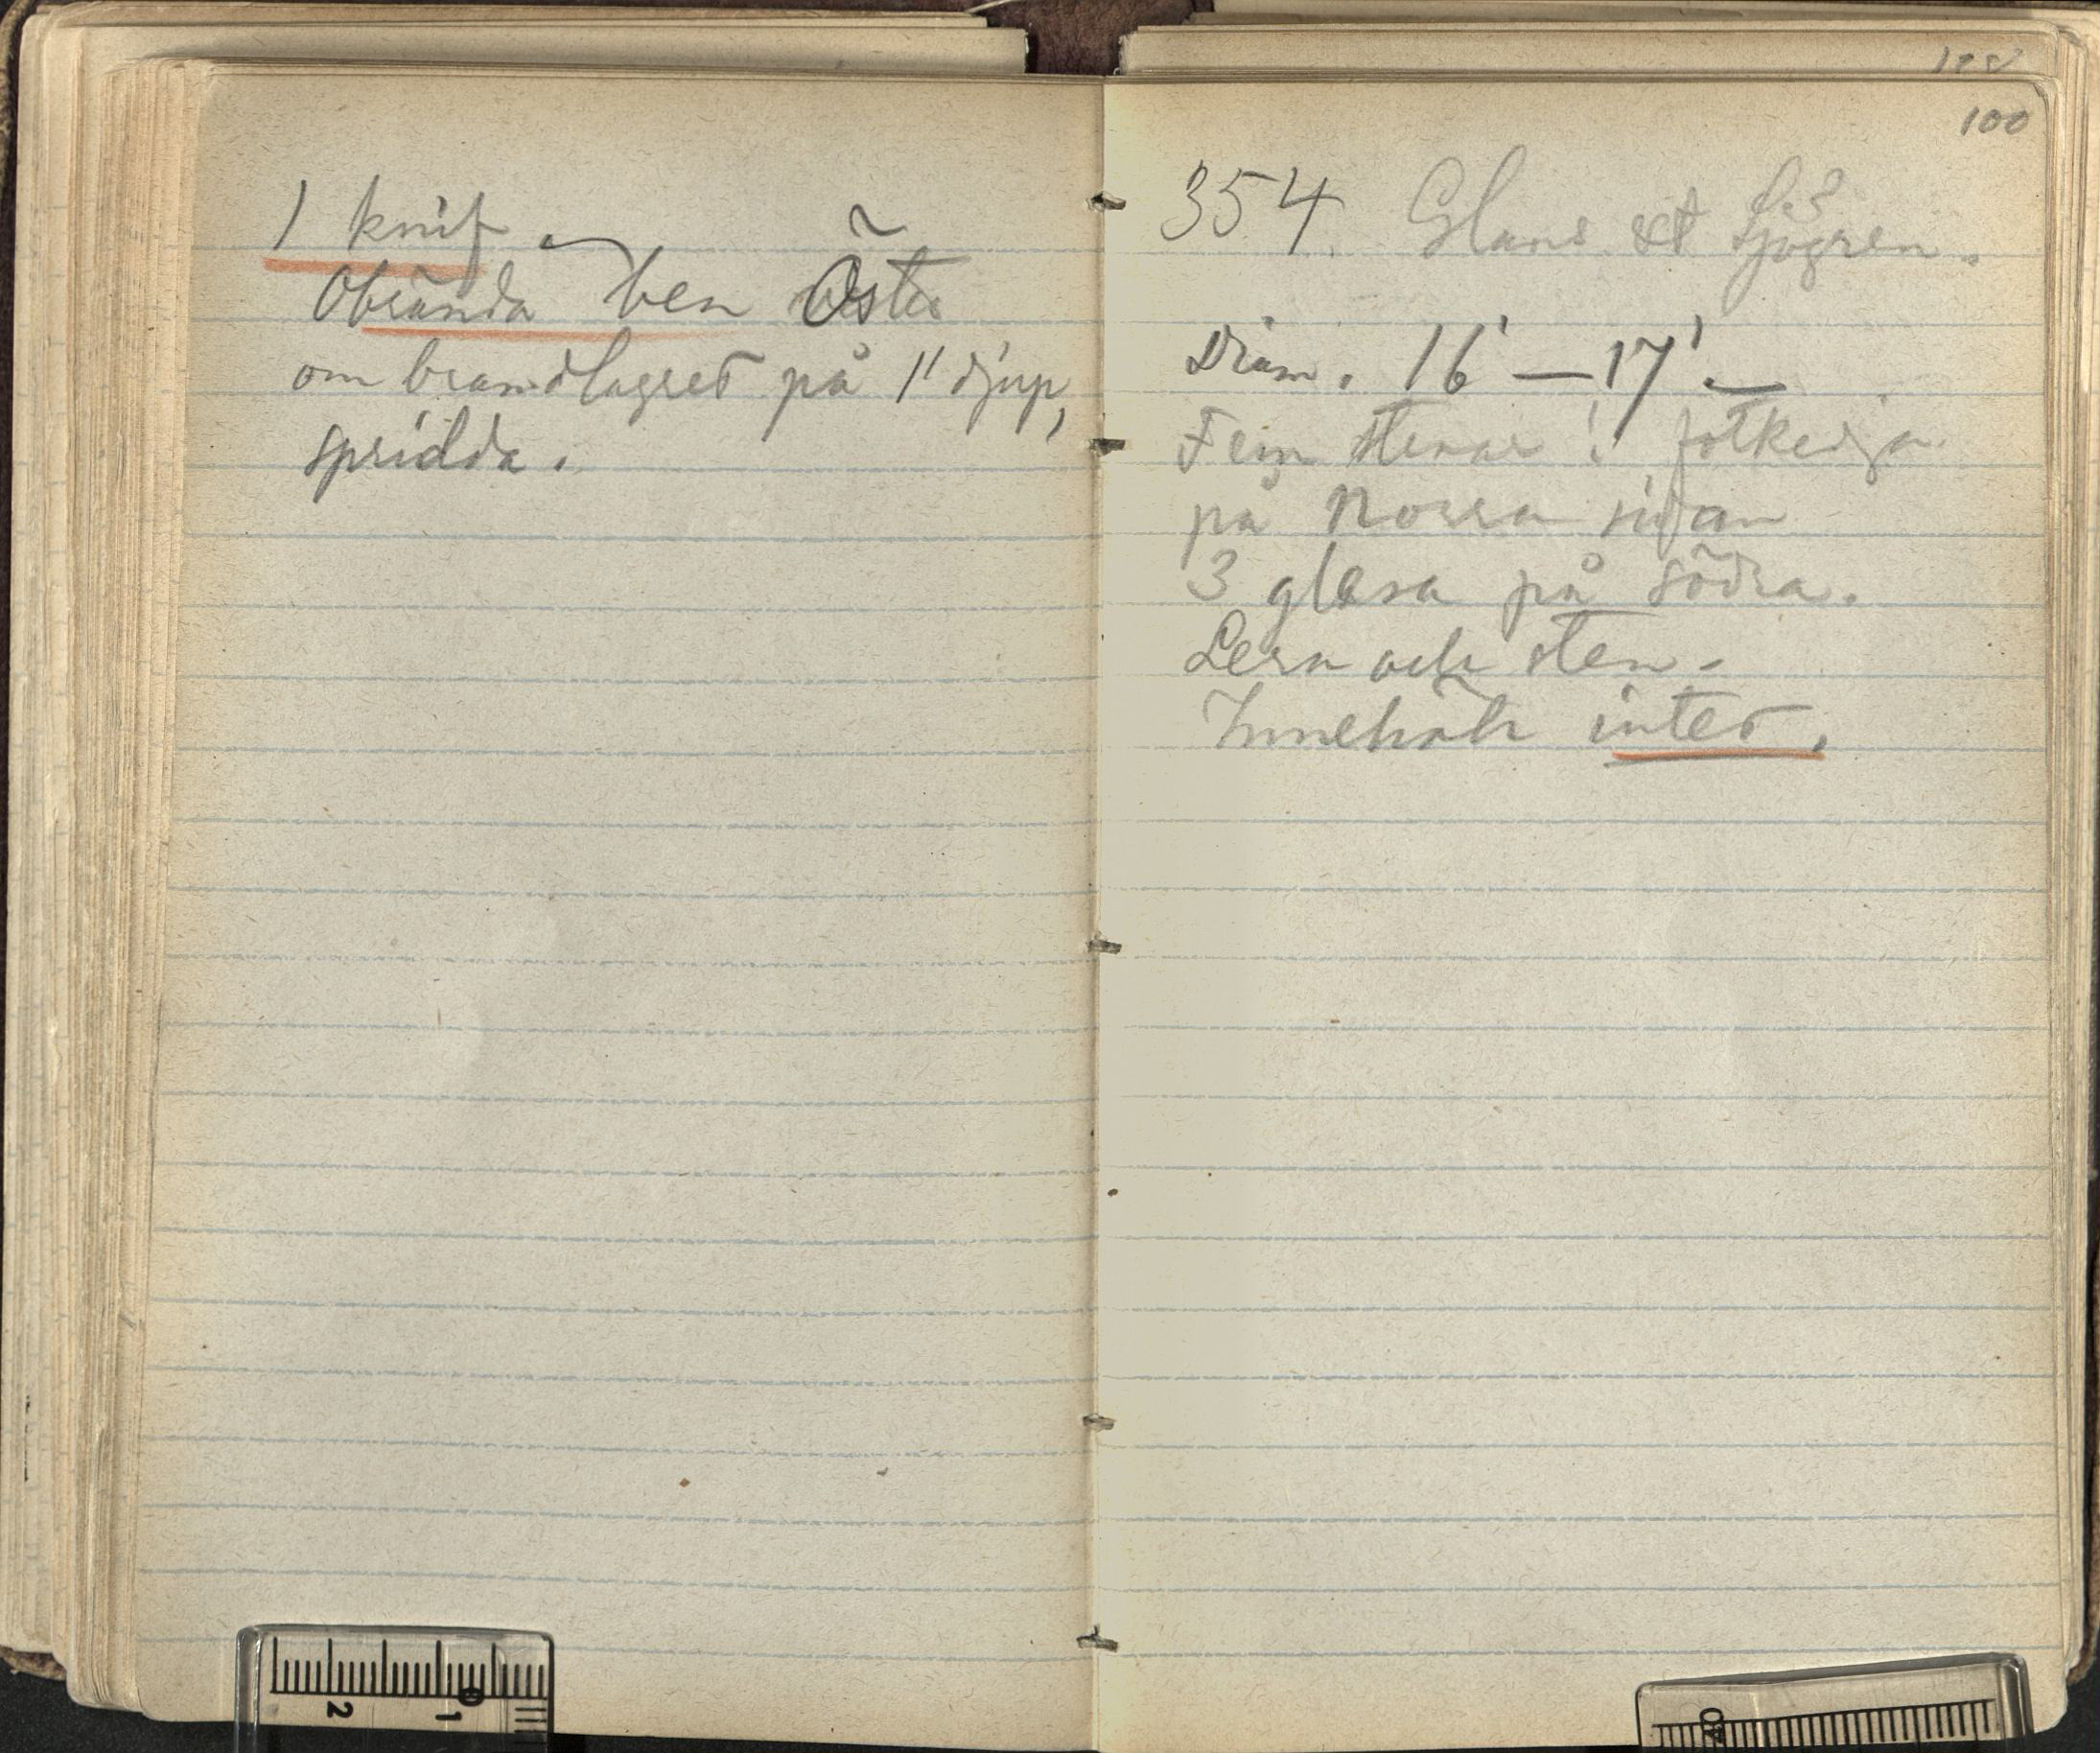 1 knif
Obrända ben Öster
om brandlagret på 1' djup,
spridda.
100
354. Glans et Sjögren.
Diam. 16' — 17'.
Fem stenar i fotkedja
på Norra sidan
3 glesa på södra.
Lera och sten.
Innehöll intet.
2
1